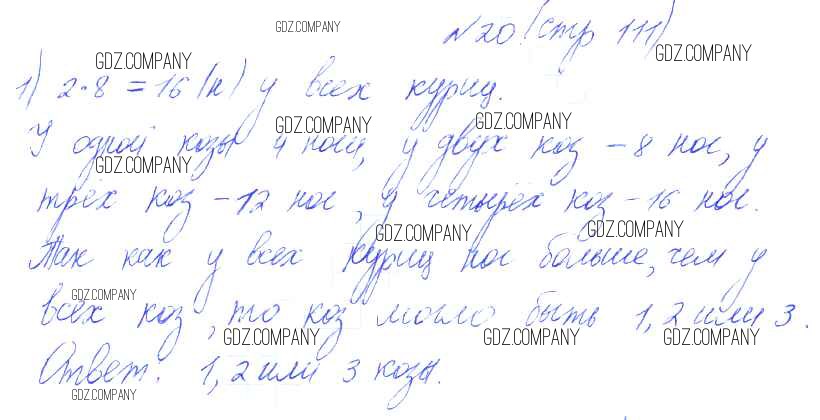 GDZ.COMPANY
№20 (стр 111)
GDZ.COMPANY GDZ.COMPANY
1) 2·8=16 (н) у всех куриц.
GDZ.COMPANY GDZ.COMPANY
У одной козы 4 ноги, у двух коз – 8 ног, у
GDZ.COMPANY
трёх коз – 12 ног, у четырёх коз – 16 ног.
GDZ.COMPANY GDZ.COMPANY
Так как у всех куриц ног больше, чем у
GDZ.COMPANY
всех коз, то коз могло быть 1, 2 или 3.
GDZ.COMPANY GDZ.COMPANY GDZ.COMPANY
Ответ: 1, 2 или 3 козы.
GDZ.COMPANY